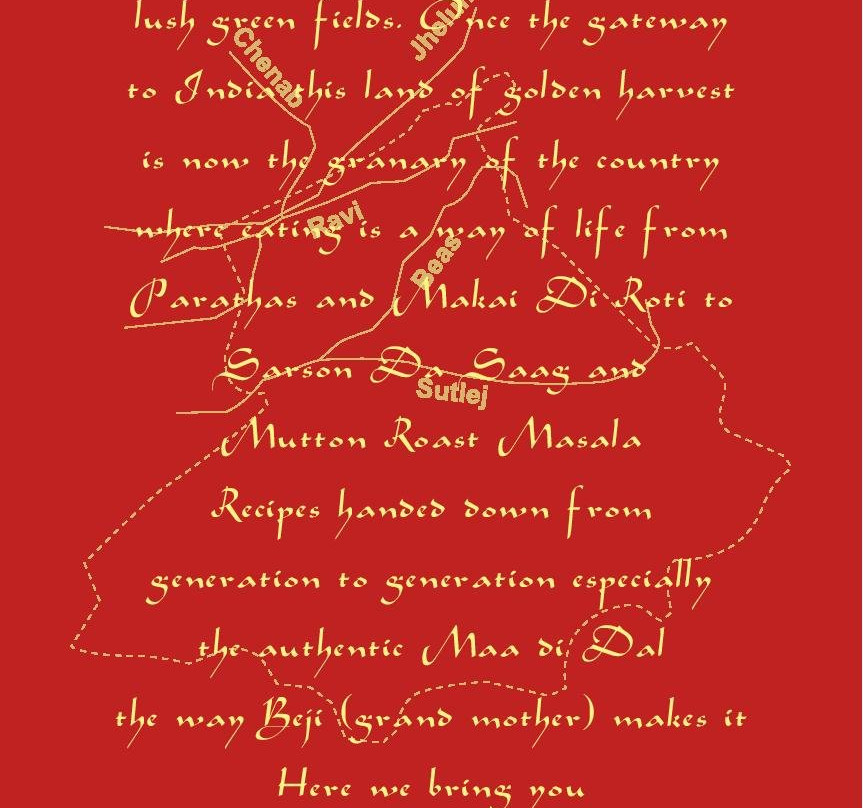 lush green fields. Once the gateway
to India this land of golden harvest
is now the granary of the country
where eating is a way of life from
Parathas and Makai Di Roti to
Sarson Da Saag and
Mutton Roast Masala
Recipes handed down from
generation to generation especially
the authentic Maa di Dal
the way Beji (grand mother) makes it
Here we bring you
Chenab
Jhelum
Ravi
Beas
Sutlej